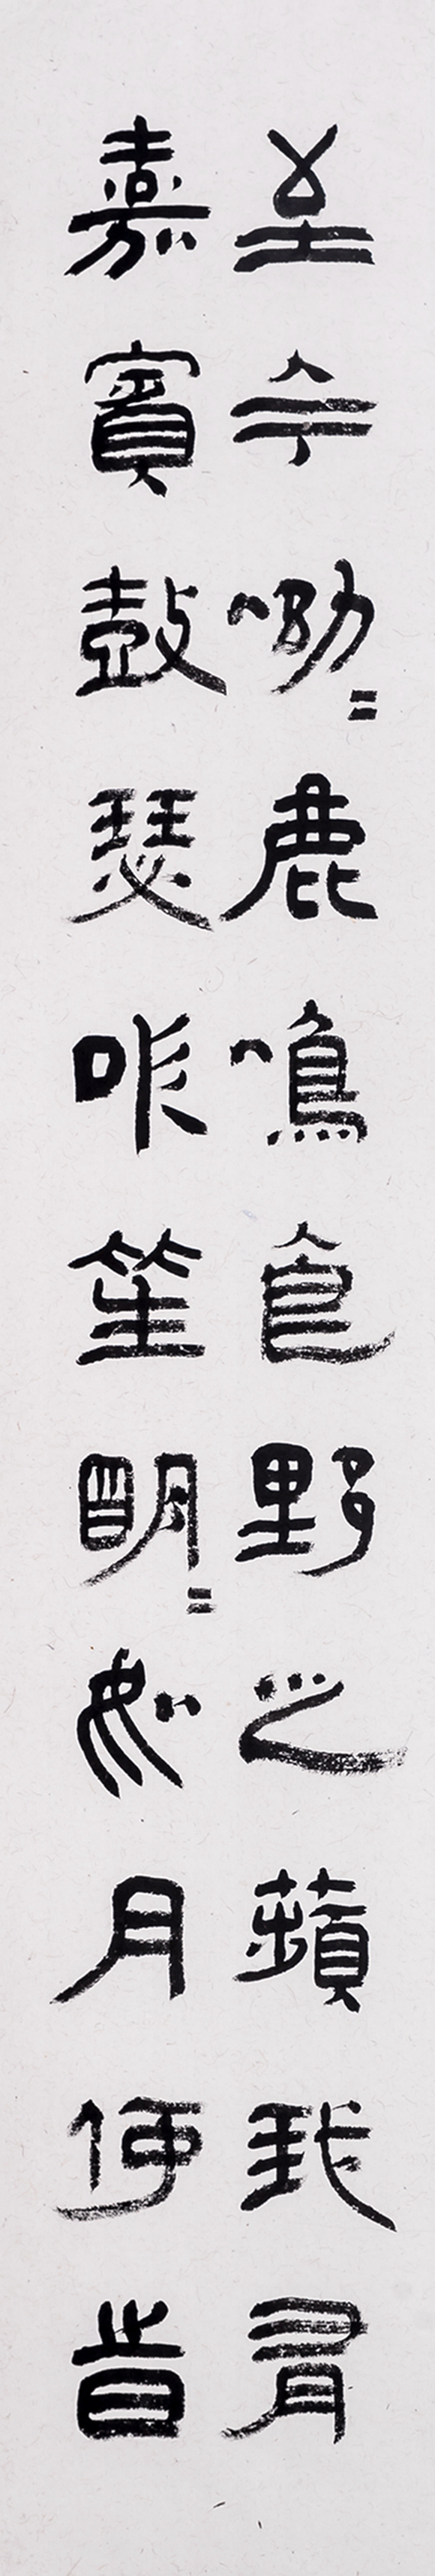 至今呦=鹿鳴食野之蘋我有
嘉賓鼓瑟吹笙明=如月何旹